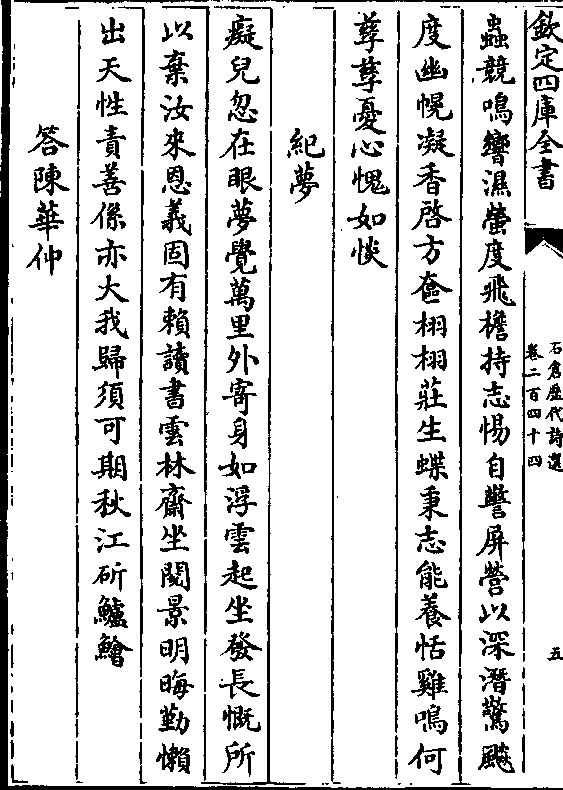 欽定四庫全書
石倉歷代詩選
卷二百四十四
五
蟲競鳴響濕螢度飛檐持志惕自警屏營以深潛驚飇
度幽幌凝香啓方奩栩栩莊生蝶秉志能養恬雞鳴何
孳孳憂心愧如惔
紀夢
癡兒忽在眼夢覺萬里外寄身如浮雲起坐發長慨所
以棄汝來恩義固有賴讀書雲林齋坐閱景明晦勤懶
出天性責善係亦大我歸須可期秋江斫鱸鱠
答陳華仲